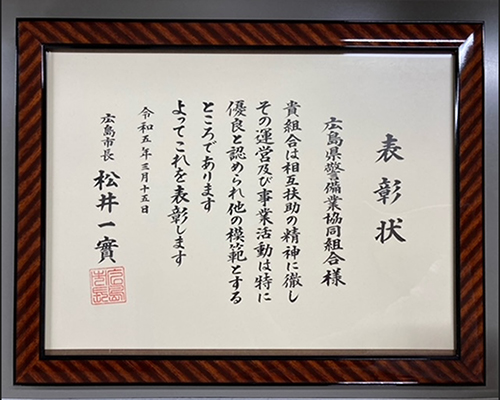 表彰状
広島県警備業協同組合様
貴組合は相互扶助の精神に徹し
その運営及び事業活動は特に
優良と認められ他の模範とする
ところであります
よってこれを表彰します
令和五年三月十五日
広島市長 松井一實
広島市長